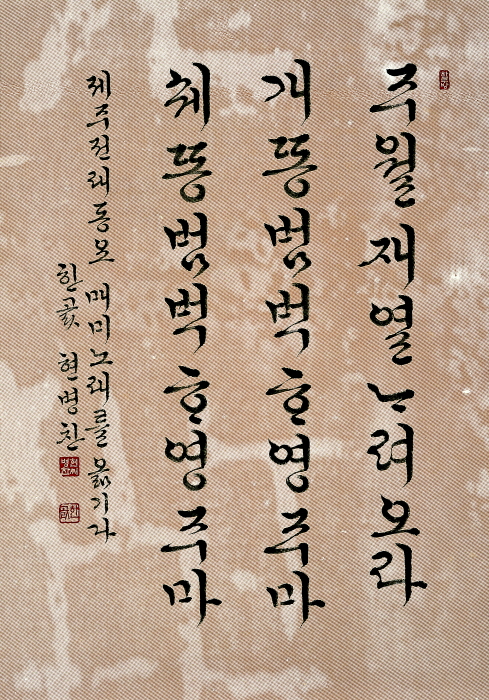 주월재열ᄂᆞ려오라
개똥범벅ᄒᆞ영주마
쉐똥범벅ᄒᆞ영주마
제주전래동요 매미노래를 옮기다
한곬 현병찬